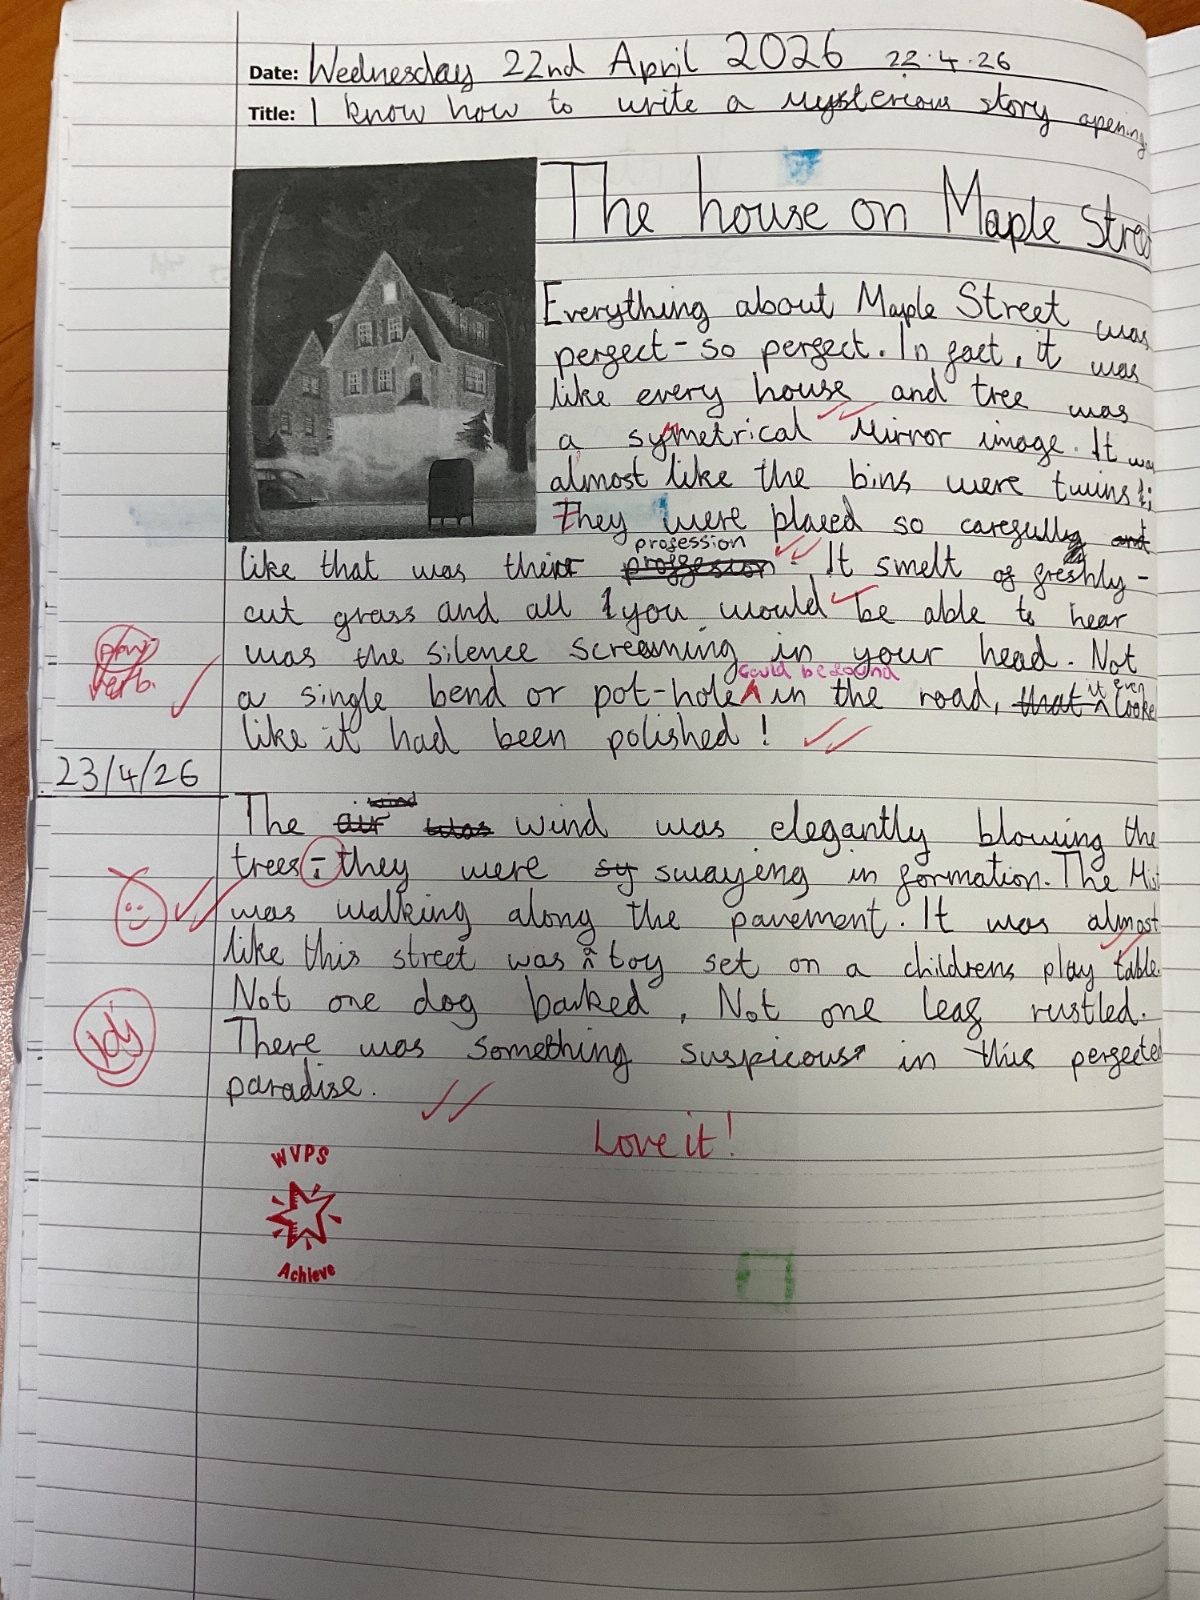 Date: Wednesday 22nd April 2026 22.4.26
Title: I know how to write a mysterious story opening
The house on Maple Street
Everything about Maple Street was
perfect - so perfect. In fact, it was
like every house and tree was
a symmetrical mirror image. It was
almost like the bins were twins;
they were placed so carefully and
profession
like that was their proffesion. It smelt of freshly-
cut grass and all you would be able to hear
was the silence screaming in your head. Not
could be found
a single bend or pot-hole ^ in the road, that ^ it even looke
like it had been polished!
verb.
23/4/26
wind
The air was wind was elegantly blowing the
trees; they were sy swayeng in formation. The Mist
was walking along the pavement. It was almost
like this street was ^ a toy set on a childrens play table.
Not one dog barked, Not one leaf rustled.
There was something suspicous in this perfected
paradise.
Love it!
WVPS
Achieve